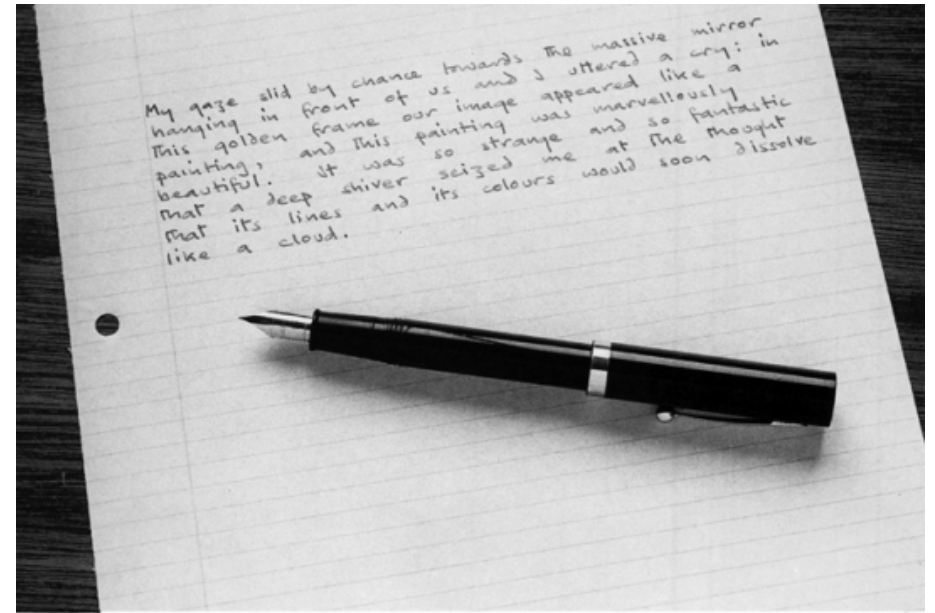 My gaze slid by chance towards the massive mirror
hanging in front of us and I uttered a cry: in
this golden frame our image appeared like a
painting, and this painting was marvellously
beautiful. It was so strange and so fantastic
that a deep shiver seized me at the thought
that its lines and its colours would soon dissolve
like a cloud.